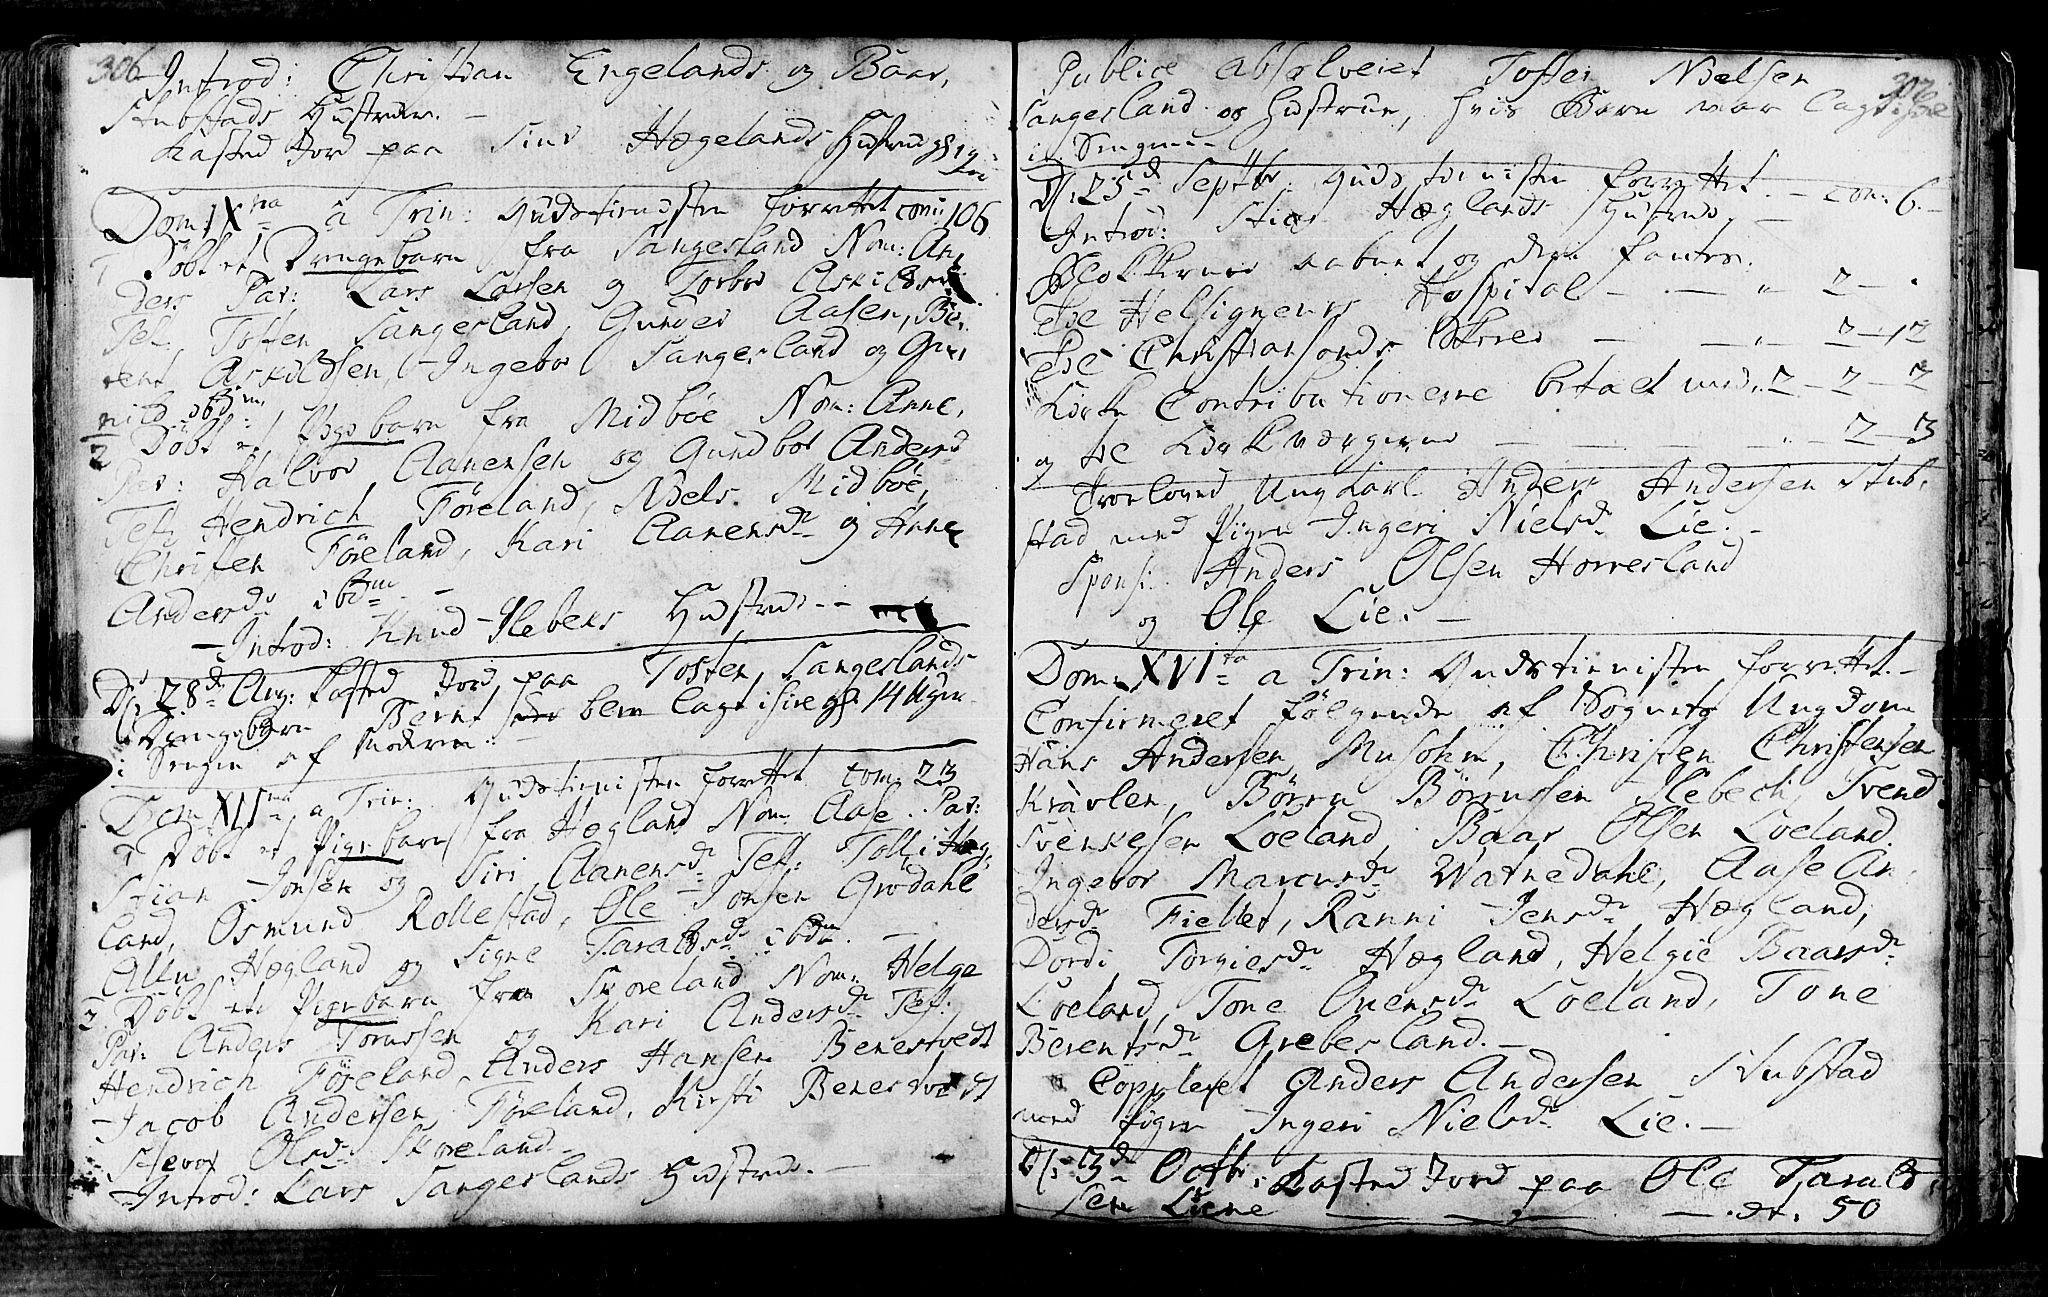 306
Introd: Christian Engelands og Baar,
Stubstads Hustruer. -
Kasted Jord paa Siur Hægelands Hustrue
Dom: IX na a Trin: Gudstienesten forrettet com: 106
1 Døbt et Drengebarn fra Sangesland Nom: An,
ders Par: Lars Larsen og Torbor Askilds
Test. Tosten Sangesland, Gunder Aasen, Be,
rent Askildsen, Ingebor Sangesland og Gu
nild ibdm.
2 Døbt et Pigebarn fra Midbøe Nom: Anne,
Par: Halvor Aanensen og Gundbor Andersd
Test. Hendrich Føreland, Niels Midbøe,
Christen Føreland, Kari Aanensdr og Anne
Andersdr ibdm. -
Introd: Knud Ilebeks Hustrue. -
D. 28de Aug: Kasted Jord paa Tosten Sangeslands
Drengebarn Berent som blev lagt ihiel gl. 14 Uger
i Sengen af Moderen. -
Dom XII na a Trin: Gudstienisten forrettet com: 23
1 Døbt et Pigebarn fra Hægland Nom. Aase. Par:
Stian Jonsen og Siri Aanensdr Test: Tolli Hæg,
land, Osmund Rollestad, Ole Jonsen Grødahl
Hægland og Signe Taraldsdr ibdm. -
2. Døbt et Pigebarn fra Skoreland Nom: Helge
Par: Anders Tornssen og Kari Andersdr Test.
Hendrich Føreland, Anders Hansen Benestvedt
Jacob Andersen Føreland, Kirsti Benestvedt
Olsdr Skoreland. -
Introd: Lars Sangeslands Hustrue. -
307
Publice absolveret Tosten Nielsen
Sangesland og Hustrue, hvis Barn var lagt ihiel
i Sengen. -
D. 25de Septbr: Gudstienisten forrettet. - com: 6. -
Introd: Stian Hæglands Hustrue. -
Blokkerne aabnet og den fantes:
De Helsigneurs Hospital - - " 2 - .
De Christiansands - - " 2 - 12
Kirke Contributionerne betalt med, 2 - 2 - 2
og de Kirkeværgerne - - - " - 2 - 3
Troeloved Ungkarl Anders Andersen Stub,
stad med Pigen Ingeri Nielsdr Lie. -
Spons: Anders Olsen Horresland
og Ole Lie. -
Dom: XVI ta a Trin: Gudstienisten forrettet. -
Confirmeret følgende af Sognets Ungdom
Hans Andersen Musohm, Christen Christensen
Kravlen, Børru Børrussen Ilebech, Svend
Svenkesen Loeland, Baar Olsen Loeland.
Ingebor Marcusdr Watnedahl, Aase An,
dersdr Fiellet, Ranni Jensdr Hægland,
Dordi Torgiesdr Hægland, Helgie Baarsdr
Loeland, Tone Ovensdr Loeland, Tone
Berentsdr Grebesland. -
Copuleret Anders Andersen Stubstad
med Pigen Ingeri Nielsdr Lie. -
D. 3de Octbr: Kasted Jord paa Ole Tarald,
sen Liene - - - æt: 50